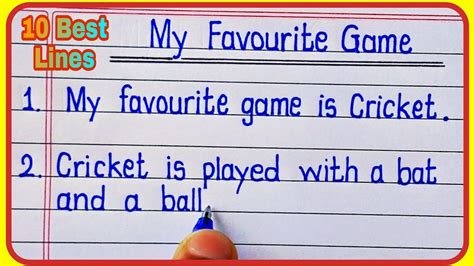 10 Best
Lines
My Favourite Game
1. My favourite game is Cricket.
2. Cricket is played with a bat
and a ball